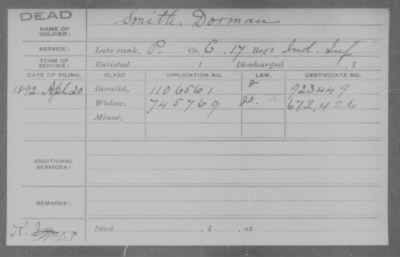 DEAD
NAME OF SOLDIER: Smith, Dorman
SERVICE: Late rank, P. Co. C, 17 Reg't Ind. Inf
TERM OF SERVICE: Enlisted , 1 Discharged , 1
DATE OF FILING. CLASS. APPLICATION NO. LAW. CERTIFICATE NO.
1892 Apl 20 Invalid, 1106561 923449
Widow, 745769 672,426
Minor,
ADDITIONAL SERVICES:
REMARKS:
Died , 1 , at